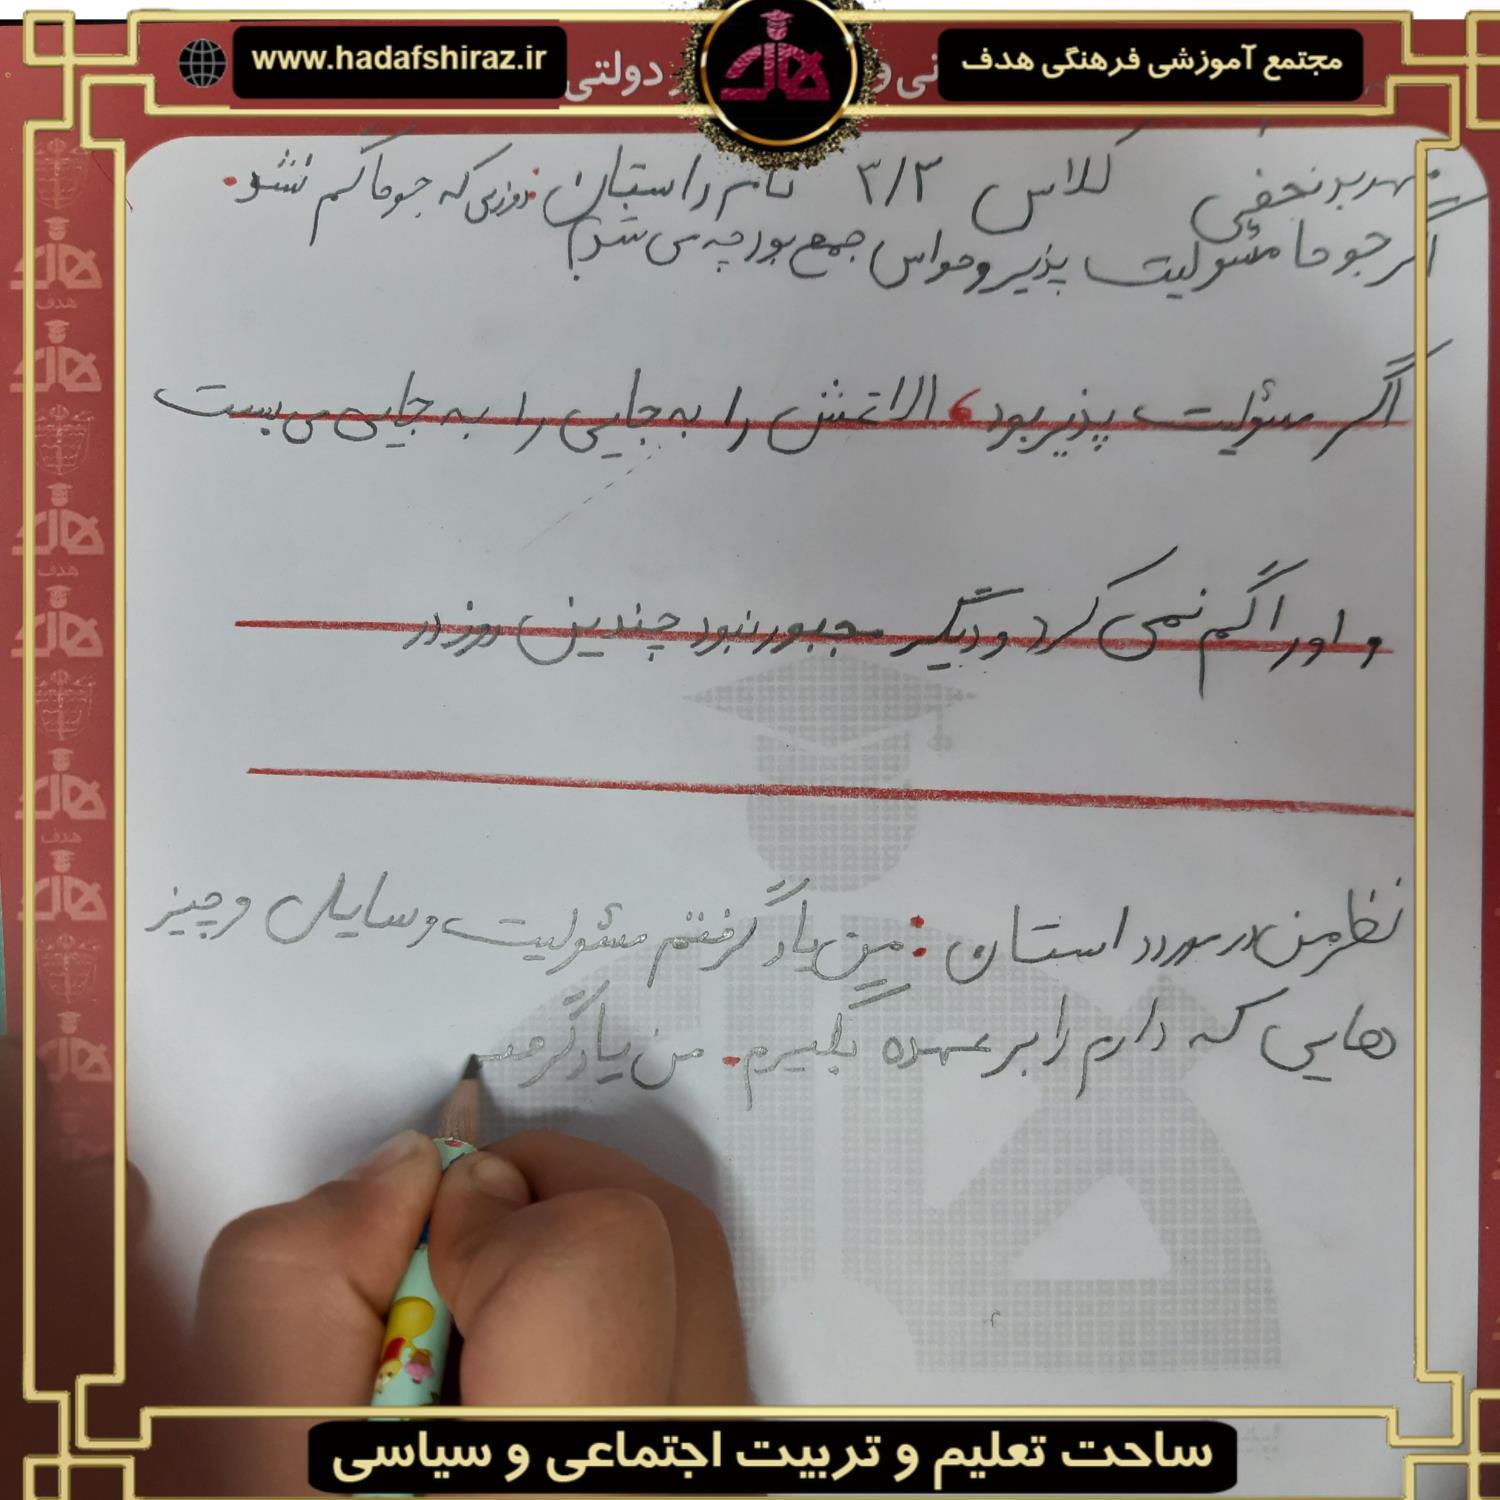 www.hadafshiraz.ir
مجتمع آموزشی فرهنگی هدف
دولتی
نجفی کلاس ۳/۳ نام داستان: روزی که جوحا گم نشد.
اگر جوحا مسئولیت پذیر و حواس جمع بود چه می شد؟
اگر مسئولیت پذیر بود، الاغش را به جایی را به جایی می بست
و او را گم نمی کرد و دیگر مجبور نبود چندین روز در
نظر من در مورد داستان: من یاد گرفتم مسئولیت وسایل و چیز
هایی که دارم را بر عهده بگیرم. من یاد
هدف
ساحت تعلیم و تربیت اجتماعی و سیاسی